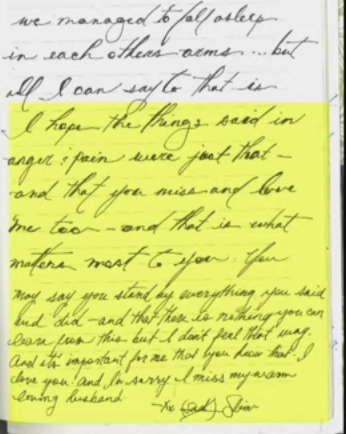 we managed to fall asleep
in each others arms ... but
all I can say to that is
I hope the things said in
anger & pain were just that -
and that you miss and love
me too - and that is what
matters most to you. You
may say you stand by everything you said
and did - and that there is nothing you can
learn from this but I don't feel that way.
And it's important for me that you know that. I
love you. and I'm sorry. I miss my warm
loving husband.
- Xx